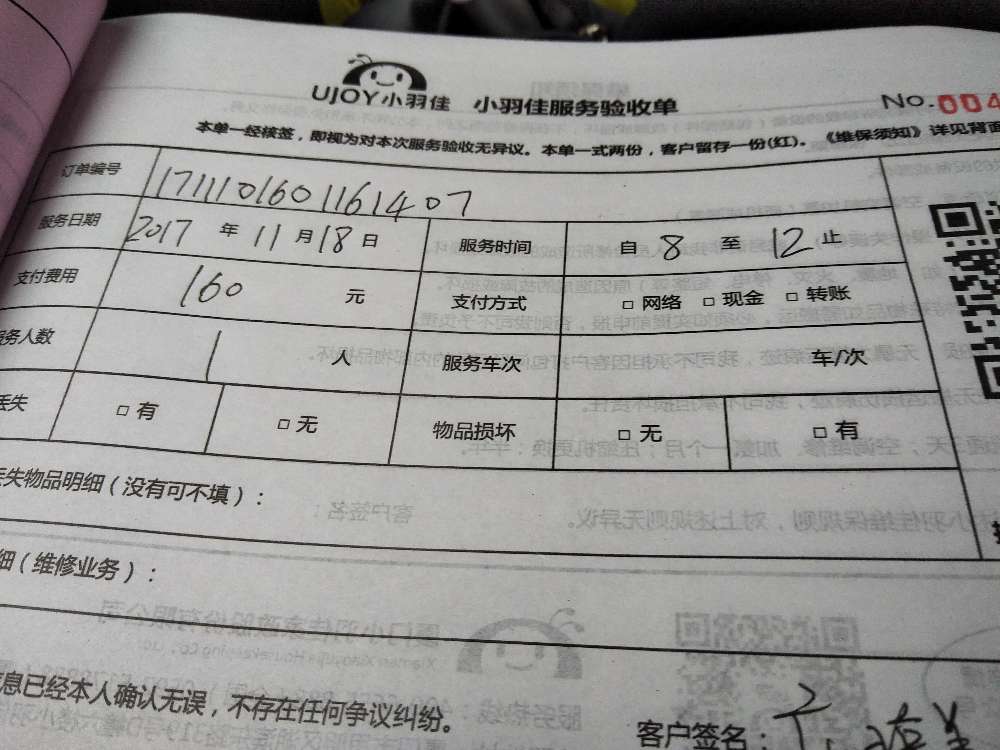 UJOY小羽佳 小羽佳服务验收单 No.004
本单一经核签，即视为对本次服务验收无异议。本单一式两份，客户留存一份(红)。《维保须知》详见背面
订单编号 1711101601161407
服务日期 2017 年 11 月 18 日 服务时间 自 8 至 12 止
支付费用 160 元 支付方式 □ 网络 □ 现金 □ 转账
务人数 1 人 服务车次 车/次
丢失 □ 有 □ 无 物品损坏 □ 无 □ 有
丢失物品明细（没有可不填）：
细（维修业务）：
息已经本人确认无误，不存在任何争议纠纷。
客户签名：